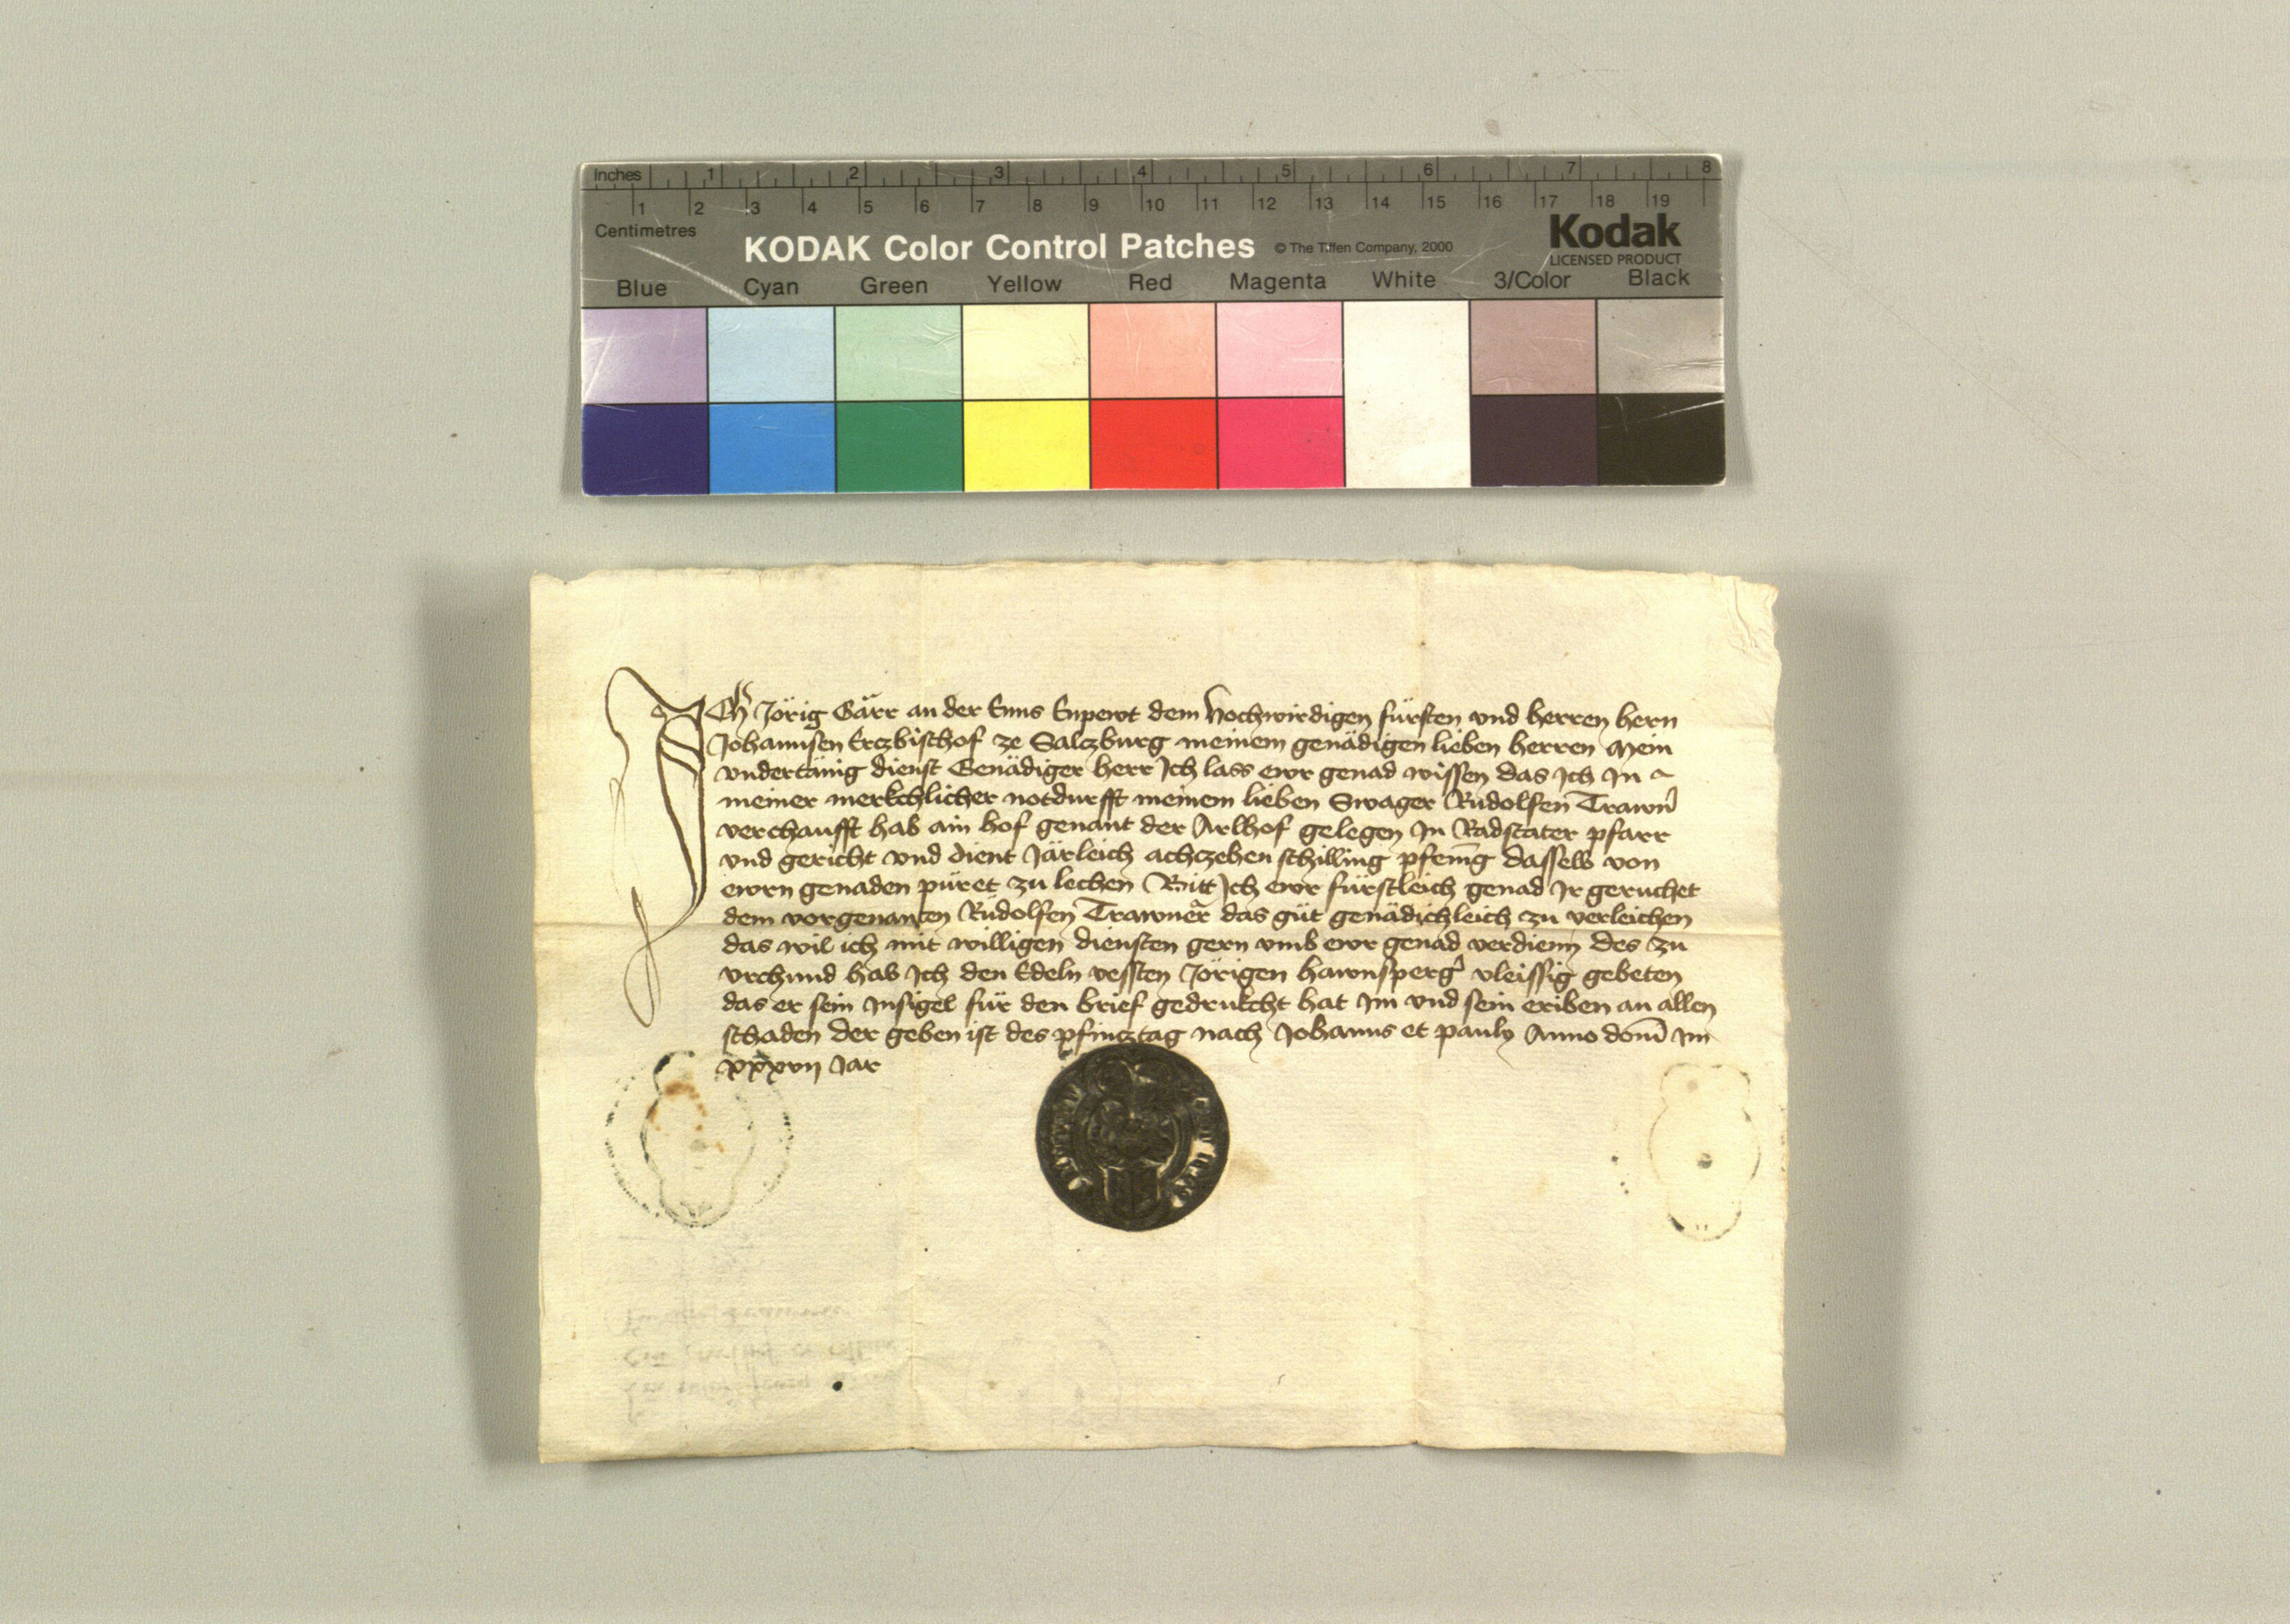 Inches 1 2 3 4 5 6 7 8
1 2 3 4 5 6 7 8 9 10 11 12 13 14 15 16 17 18 19
Centimetres
KODAK Color Control Patches © The Tiffen Company, 2000 Kodak
LICENSED PRODUCT
Blue Cyan Green Yellow Red Magenta White 3/Color Black
ICh Jörig Gärr an der Enns Enpewt dem Hochwirdigen fürsten vnd herren hern
Johannsen Erczbischof ze Salczburg meinem genädigen lieben herren Mein
vndertänig dienst Genädiger herr Ich lass ewr genad wissen das Ich In
meiner merkchlicher notdurfft meinem lieben Swager Rüdolfen Trawn̄
verchaufft hab ain hof genant der Arlhof gelegen In Radstater pfarr
vnd gericht vnd dient Järleich achczehen schilling pfenīg dasselb von
ewrn genaden püret zu lechen Bitt Ich ewr fürstleich genad Ir geruchet
dem vorgenanten Rüdolfen Trawner das güt genädichleich zu verleichen
das wil ich mit willigen diensten gern vmb ewr genad verdienn des zu
vrchund hab Ich den Edeln vessten Jörigen hawnsperg̕ vleissig gebeten
das er sein Insigel für den brief gedrukcht hat Im vnd sein eriben an allen
schaden der geben ist des pfincztag nach Johanns et pauly Anno dom̄ Im
xxxvij Jar